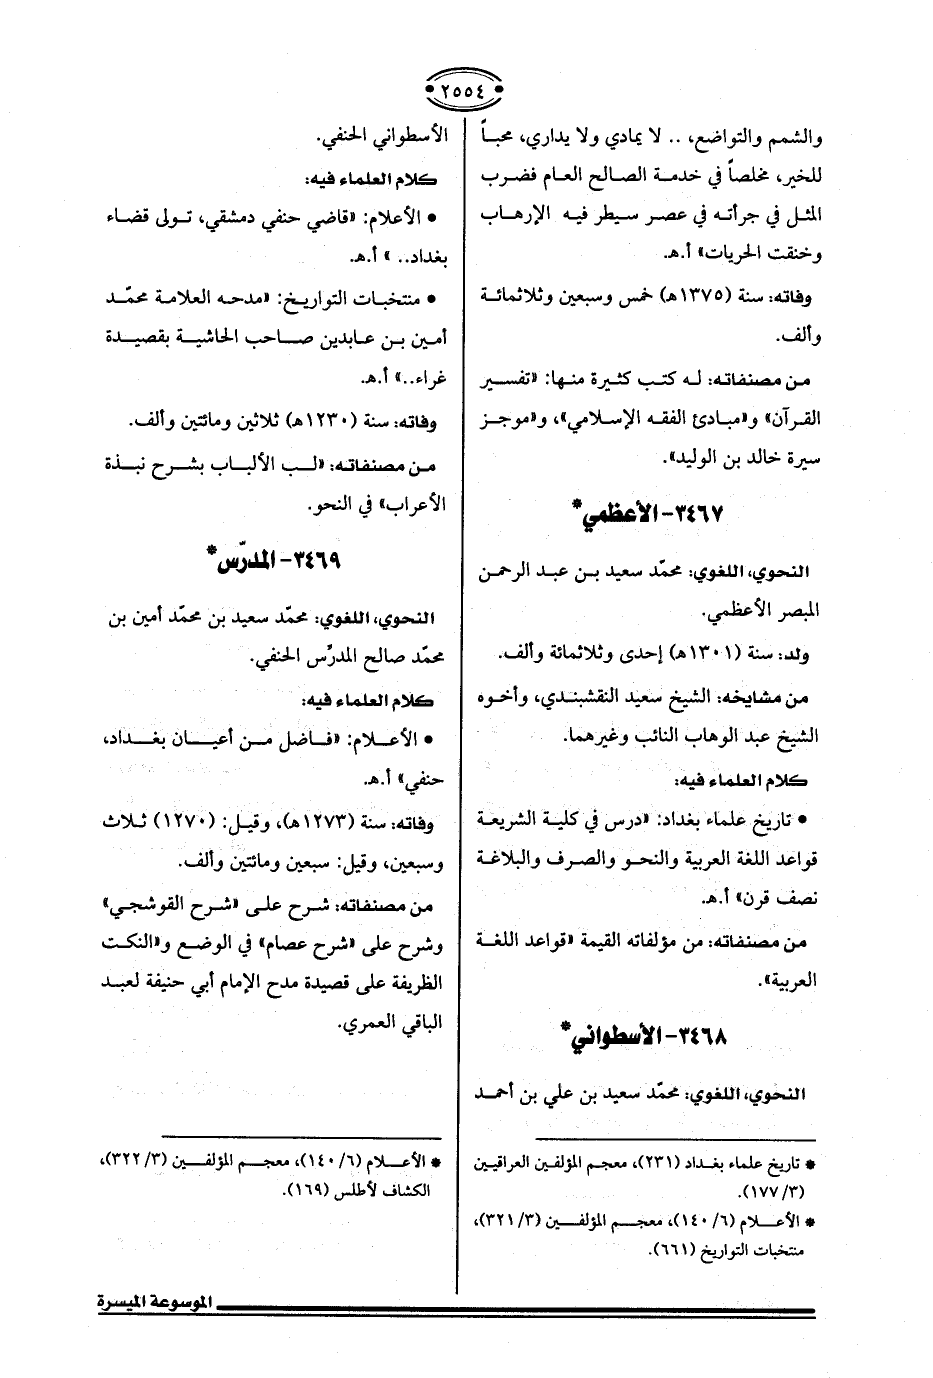 ٢٥٥٤
والشمم والتواضع، .. لا يمادي ولا يداري، محباً
للخير، مخلصاً في خدمة الصالح العام فضرب
المثل في جرأته في عصر سيطر فيه الإرهاب
وخنقت الحريات» أ.هـ.
وفاته: سنة (١٣٧٥هـ) خمس وسبعين وثلاثمائة
وألف.
من مصنفاته: له كتب كثيرة منها: «تفسير
القرآن» و«مبادئ الفقه الإسلامي»، و«موجز
سيرة خالد بن الوليد».
٣٤٦٧- الأعظمي*
النحوي، اللغوي: محمّد سعيد بن عبد الرحمن
المبصر الأعظمي.
ولد: سنة (١٣٠١هـ) إحدى وثلاثمائة وألف.
من مشايخه: الشيخ سعيد النقشبندي، وأخوه
الشيخ عبد الوهاب النائب وغيرهما.
كلام العلماء فيه:
• تاريخ علماء بغداد: «درس في كلية الشريعة
قواعد اللغة العربية والنحو والصرف والبلاغة
نصف قرن» أ.هـ.
من مصنفاته: من مؤلفاته القيمة «قواعد اللغة
العربية».
٣٤٦٨- الأسطواني*
النحوي، اللغوي: محمّد سعيد بن علي بن أحمد
* تاريخ علماء بغداد (٢٣١)، معجم المؤلفين العراقيين
(٣/ ١٧٧).
* الأعلام (٦/ ١٤٠)، معجم المؤلفين (٣/ ٣٢١)،
منتخبات التواريخ (٦٦١).
الأسطواني الحنفي.
كلام العلماء فيه:
• الأعلام: «قاضي حنفي دمشقي، تولى قضاء
بغداد.. » أ.هـ.
• منتخبات التواريخ: «مدحه العلامة محمّد
أمين بن عابدين صاحب الحاشية بقصيدة
غراء..» أ.هـ.
وفاته: سنة (١٢٣٠هـ) ثلاثين ومائتين وألف.
من مصنفاته: «لب الألباب بشرح نبذة
الأعراب» في النحو.
٣٤٦٩- المدرّس*
النحوي، اللغوي: محمّد سعيد بن محمّد أمين بن
محمّد صالح المدرِّس الحنفي.
كلام العلماء فيه:
• الأعلام: «فاضل من أعيان بغداد،
حنفي» أ.هـ.
وفاته: سنة (١٢٧٣هـ)، وقيل: (١٢٧٠) ثلاث
وسبعين، وقيل: سبعين ومائتين وألف.
من مصنفاته: شرح على «شرح القوشجي»
وشرح على «شرح عصام» في الوضع و«النكت
الظريفة على قصيدة مدح الإمام أبي حنيفة لعبد
الباقي العمري.
* الأعلام (٦/ ١٤٠)، معجم المؤلفين (٣/ ٣٢٢)،
الكشاف لأطلس (١٦٩).
الموسوعة الميسرة